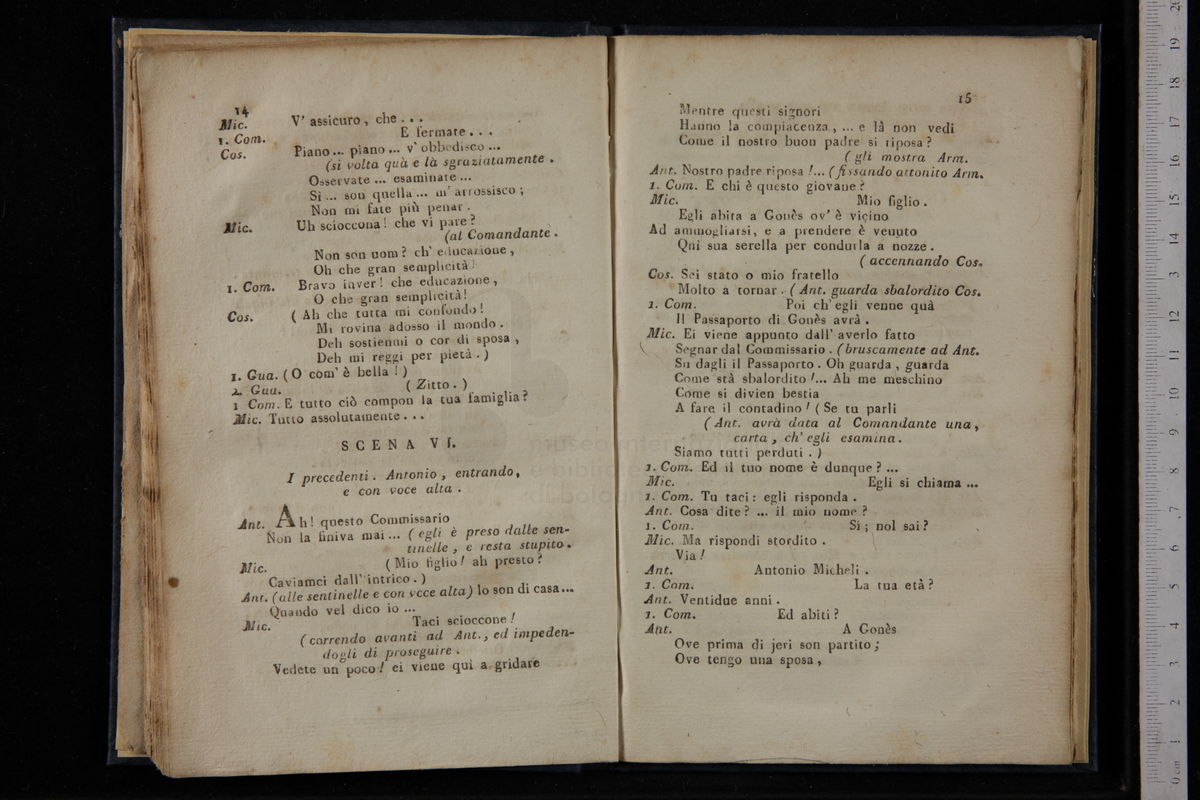 14
Mic. V' assicuro, che...
1. Com. E fermate...
Cos. Piano... piano... v' obbedisco...
(si volta quà e là sgraziatamente.
Osservate... esaminate...
Si... son quella... m' arrossisco;
Non mi fate più penar.
Mic. Uh scioccona! che vi pare?
(al Comandante.
Non son uom? ch' educazione,
Oh che gran semplicità!
1. Com. Bravo inver! che educazione,
O che gran semplicità!
Cos. (Ah che tutta mi confondo!
Mi rovina adosso il mondo.
Deh sostienmi o cor di sposa,
Deh mi reggi per pietà.)
1. Gua. (O com' è bella!)
2. Gua. (Zitto.)
1 Com. E tutto ciò compon la tua famiglia?
Mic. Tutto assolutamente...
SCENA VI.
I precedenti. Antonio, entrando,
e con voce alta.
Ant. Ah! questo Commissario
Non la finiva mai... (egli è preso dalle sen-
tinelle, e resta stupito.
Mic. (Mio figlio! ah presto?
Caviamci dall' intrico.)
Ant. (alle sentinelle e con vcce alta) Io son di casa...
Quando vel dico io...
Mic. Taci scioccone!
(correndo avanti ad Ant., ed impeden-
dogli di proseguire.
Vedete un poco! ei viene quì a gridare
15
Mentre questi signori
Hanno la compiacenza, ... e là non vedi
Come il nostro buon padre si riposa?
(gli mostra Arm.
Ant. Nostro padre riposa!... (fissando attonito Arm.
1. Com. E chi è questo giovane?
Mic. Mio figlio.
Egli abita a Gonès ov' è vicino
Ad ammogliarsi, e a prendere è venuto
Qui sua serella per condurla a nozze.
(accennando Cos.
Cos. Sei stato o mio fratello
Molto a tornar. (Ant. guarda sbalordito Cos.
1. Com. Poi ch' egli venne quà
Il Passaporto di Gonès avrà.
Mic. Ei viene appunto dall' averlo fatto
Segnar dal Commissario. (bruscamente ad Ant.
Su dagli il Passaporto. Oh guarda, guarda
Come stà sbalordito!... Ah me meschino
Come si divien bestia
A fare il contadino! (Se tu parli
(Ant. avrà data al Comandante una,
carta, ch' egli esamina.
Siamo tutti perduti.)
1. Com. Ed il tuo nome è dunque? ...
Mic. Egli si chiama ...
1. Com. Tu taci: egli risponda.
Ant. Cosa dite? ... il mio nome?
1. Com. Si; nol sai?
Mic. Ma rispondi stordito.
Via!
Ant. Antonio Micheli.
1. Com. La tua età?
Ant. Ventidue anni.
1. Com. Ed abiti?
Ant. A Gonès
Ove prima di jeri son partito;
Ove tengo una sposa,